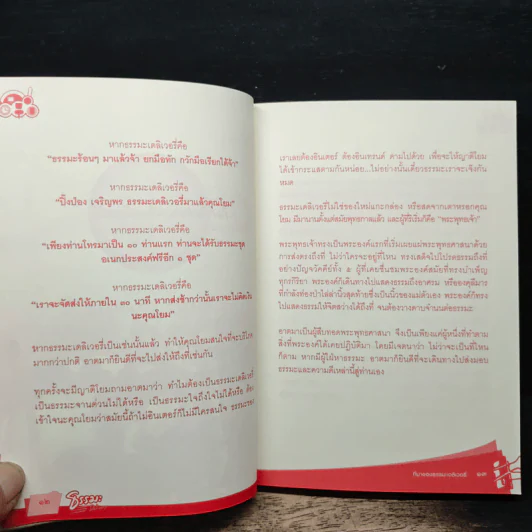 หากธรรมะเดลิเวอรี่คือ
"ธรรมะร้อนๆ มาแล้วจ้า ยกมือทัก กวักมือเรียกได้จ้า"
หากธรรมะเดลิเวอรี่คือ
"ปิ๊งป่อง เจริญพร ธรรมะเดลิเวอรี่มาแล้วคุณโยม"
หากธรรมะเดลิเวอรี่คือ
"เพียงท่านโทรมาเป็น ๑๐ ท่านแรก ท่านจะได้รับธรรมะชุด
อเนกประสงค์ฟรีอีก ๑ ชุด"
หากธรรมะเดลิเวอรี่คือ
"เราจะจัดส่งให้ภายใน ๓๐ นาที หากส่งช้ากว่านั้นเราจะไม่คิดเงิน
นะคุณโยม"
หากธรรมะเดลิเวอรี่เป็นเช่นนั้นแล้ว ทำให้คุณโยมสนใจที่จะบริโภค
มากกว่าปกติ อาตมาก็ยินดีที่จะไปส่งให้ถึงที่เช่นกัน
ทุกครั้งจะมีญาติโยมถามอาตมาว่า ทำไมต้องเป็นธรรมะเดลิเวอรี่
เป็นธรรมะจานด่วนไม่ได้หรือ เป็นธรรมะใจถึงใจไม่ได้หรือ ต้อง
เข้าใจนะคุณโยมว่าสมัยนี้ถ้าไม่อินเตอร์ก็ไม่มีใครสนใจ ธรรมะของ
๑๒
ธรรมะ
เราเลยต้องอินเตอร์ ต้องอินเทรนด์ ตามไปด้วย เพื่อจะให้ญาติโยม
ได้เข้ากระแสตามกันหน่อย...ไม่อย่างนั้นเดี๋ยวธรรมะเราจะเจิ่งกัน
หมด
ธรรมะเดลิเวอรี่ไม่ใช่ของใหม่แกะกล่อง หรือสดจากเตาหรอกคุณ
โยม มีมานานตั้งแต่สมัยพุทธกาลแล้ว และผู้ที่ริเริ่มก็คือ "พระพุทธเจ้า"
พระพุทธเจ้าทรงเป็นพระองค์แรกที่เริ่มเผยแผ่พระพุทธศาสนาด้วย
การส่งตรงถึงที่ ไม่ว่าใครจะอยู่ที่ไหน ทรงเสด็จไปโปรดธรรมถึงที่
อย่างปัญจวัคคีย์ทั้ง ๕ ผู้ที่เคยชื่นชมพระองค์สมัยที่ทรงบำเพ็ญ
ทุกรกิริยา พระองค์ก็เดินทางไปแสดงธรรมถึงอาศรม หรือองคุลีมาร
ที่กำลังท่องป่าไล่ฆ่านิ้วสุดท้ายซึ่งเป็นนิ้วของแม่ตัวเอง พระองค์ก็ทรง
ไปแสดงธรรมให้จิตสว่างได้ถึงที่ จนต้องวางดาบจำนนต่อธรรมะ
อาตมาเป็นผู้สืบทอดพระพุทธศาสนา จึงเป็นเพียงแค่ผู้หนึ่งที่ทำตาม
สิ่งที่พระองค์ได้เคยปฏิบัติมา โดยมีเจตนาว่า ไม่ว่าจะเป็นที่ไหน
ก็ตาม หากมีผู้ใฝ่หาธรรมะ อาตมาก็ยินดีที่จะเดินทางไปส่งมอบ
ธรรมะและความดีเหล่านี้สู่ท่านเอง
ที่มาของธรรมะเดลิเวอรี่ ๑๓